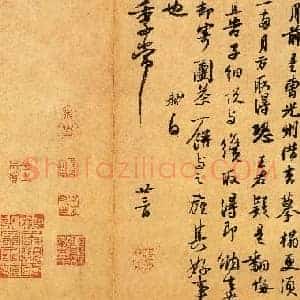 月前是曹光州借去摹榻更須
一兩月方取得恐王君疑是翻悔
且告子細說與纔取得即納去
却寄團茶一餅與之旌其好事
也 軾白 廿三日
季常
Shufaziliao.com